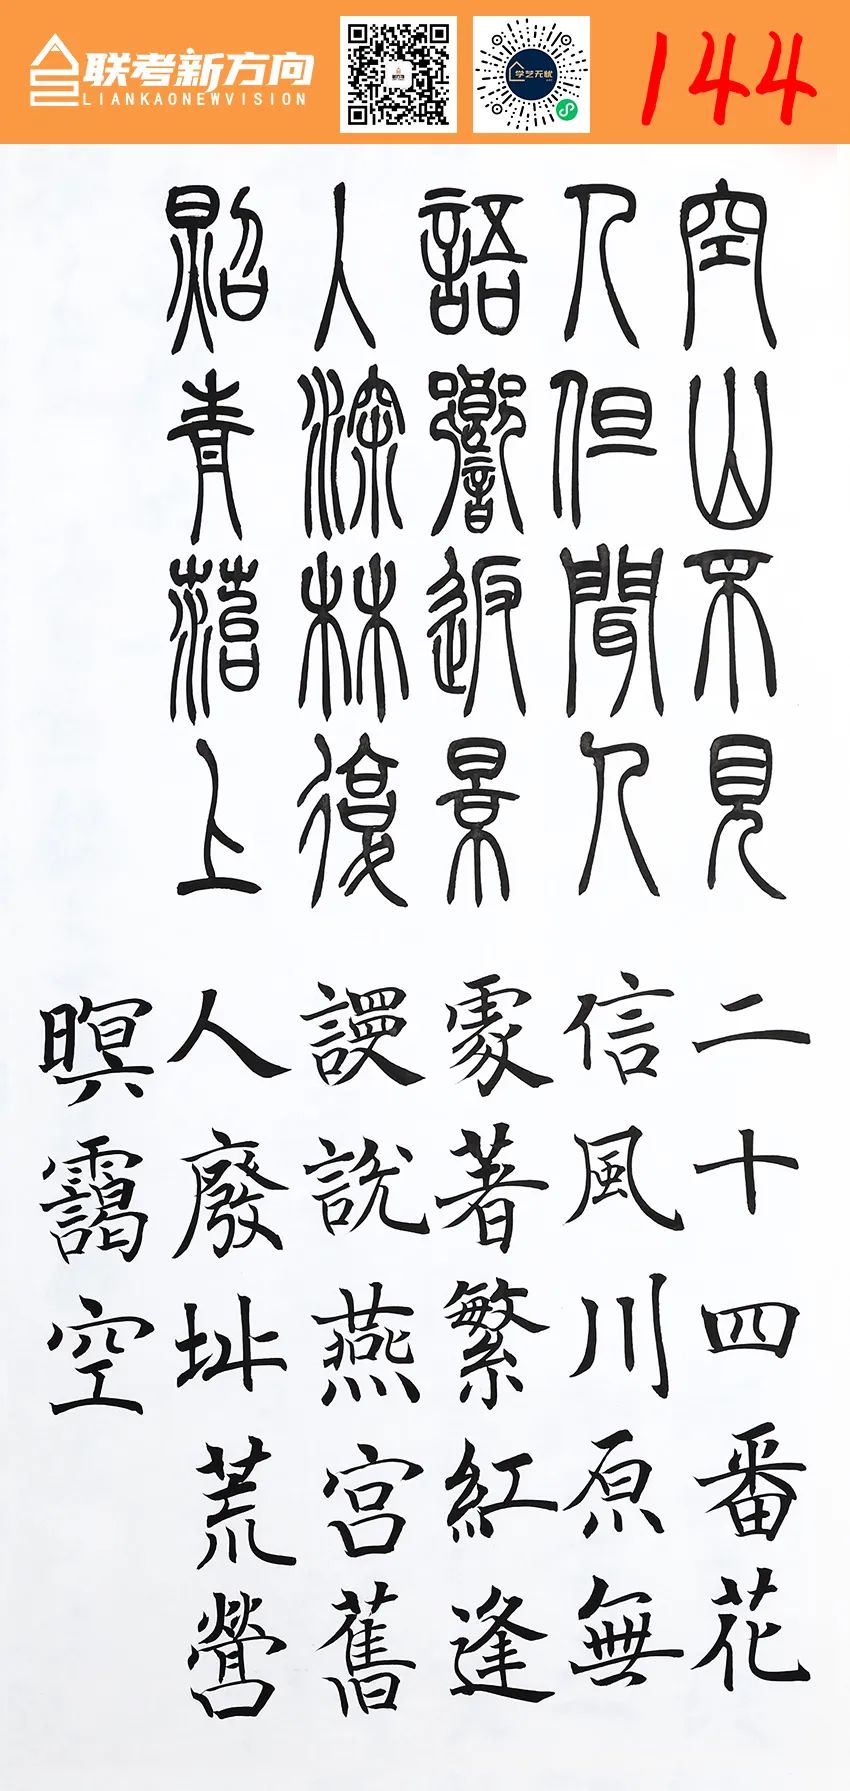 联考新方向
LIANKAONEWVISION
学艺无忧
144
空山不見
人但聞人
語響返景
入深林復
照青菭上
二十四番花
信風川原無
處著繁紅逢
謾說燕宮舊
人廢址荒營
暝靄空